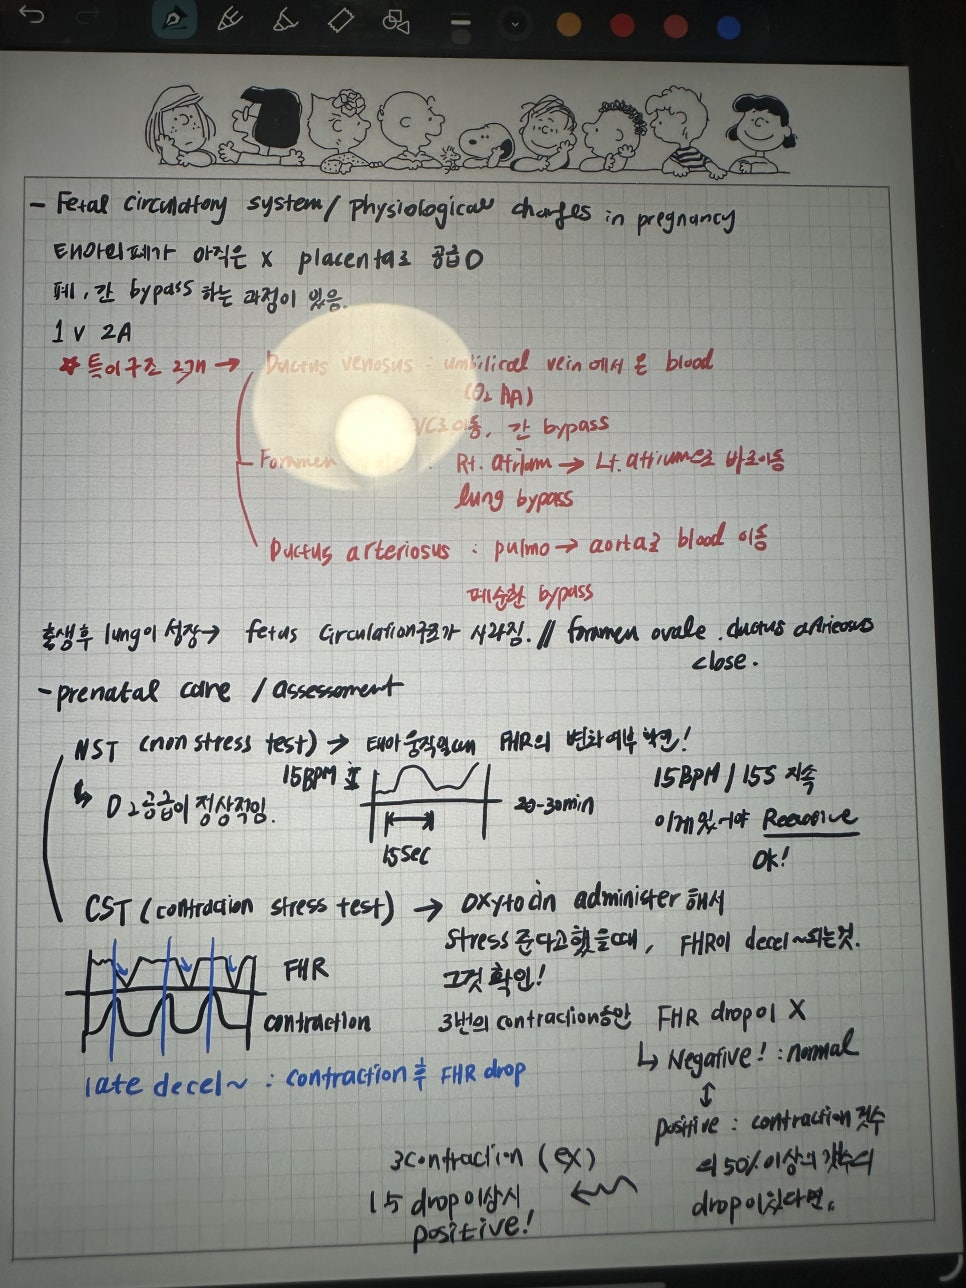 - Fetal circulatory system / physiological changes in pregnancy
태아의 폐가 아직은 X placenta로 공급O
폐, 간 bypass 하는 과정이 있음.
1V 2A
☆ 특이구조 → Ductus venosus : umbilical vein에서 온 blood
(O2)
이동, 간 bypass
Foramen : Rt. atrium → Lt. atrium으로 바로이동
lung bypass
Ductus arteriosus : pulmo → aorta로 blood 이동
폐순환 bypass
출생후 lung이 성장→ fetus circulation구조가 사라짐. // foramen ovale. ductus artrieosus
close.
- prenatal care / assessment
NST (non stress test) → 태아 움직일때 FHR의 변화여부 확인!
↳ O2공급이 정상적임.
15BPM
15sec
20-30min
15BPM / 15S 지속
이게있어야 Reactive
OK!
CST (contraction stress test) → oxytocin administer 해서
stress 준다고 했을때, FHR이 decel~되는것.
그것 확인!
FHR
contraction
3번의 contraction동안 FHR drop이 X
↳ Negative! : normal
↕
positive : contraction 갯수
의 50% 이상의 갯수의
drop이 있다면..
late decel~ : contraction후 FHR drop
3contraction (ex)
1.5 drop이상시
positive!